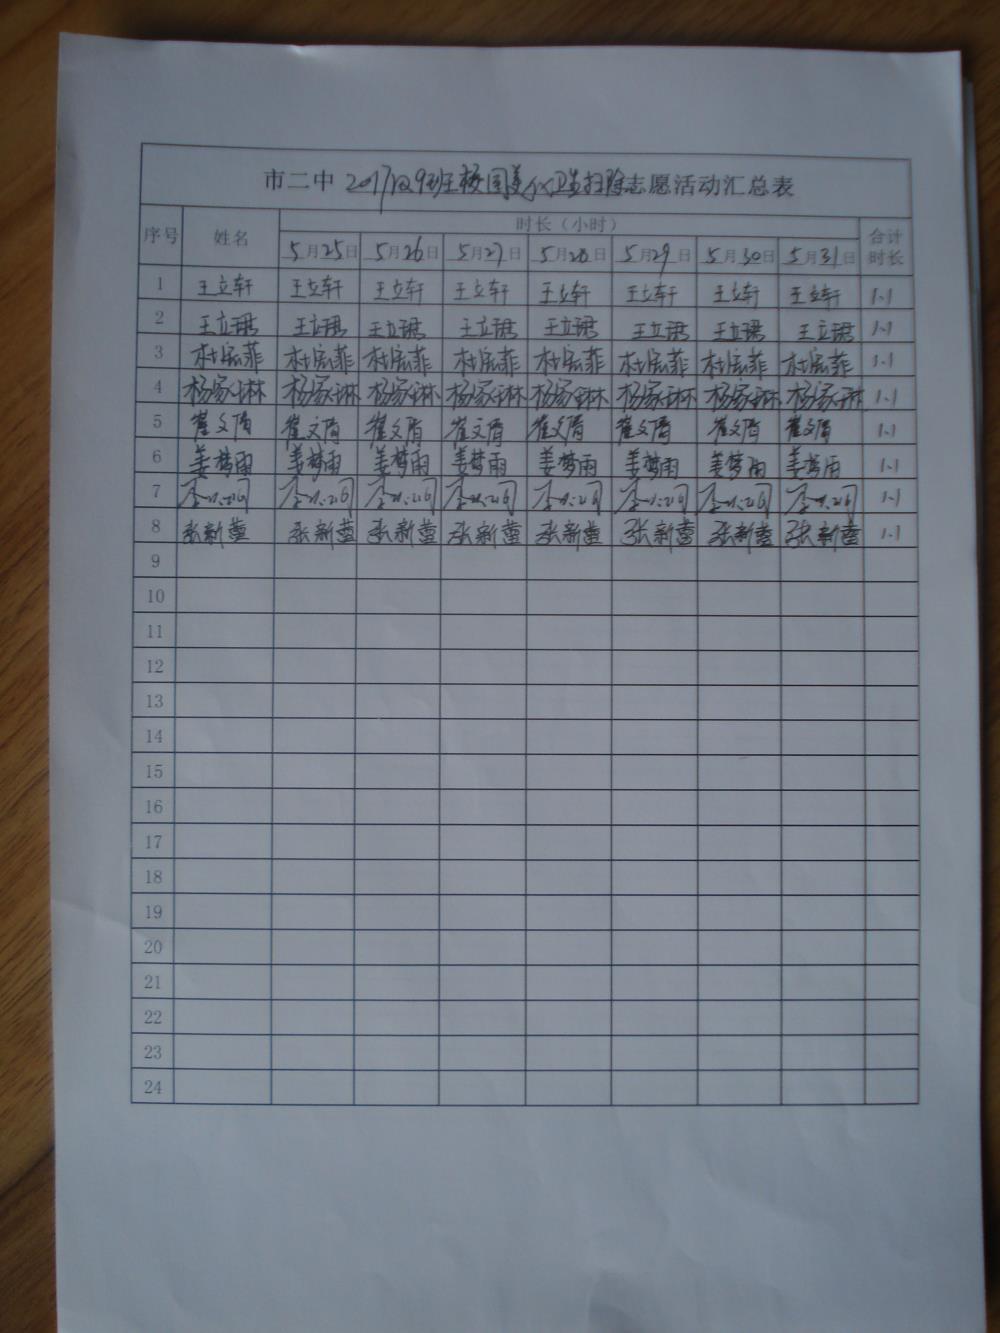 市二中2017级9班校园美化卫生扫除志愿活动汇总表
序号 姓名 时长（小时） 合计时长
5月25日 5月26日 5月27日 5月28日 5月29日 5月30日 5月31日
1 王立轩 王立轩 王立轩 王立轩 王立轩 王立轩 王立轩 王立轩 1.1
2 王立珺 王立珺 王立珺 王立珺 王立珺 王立珺 王立珺 王立珺 1.1
3 杜宏菲 杜宏菲 杜宏菲 杜宏菲 杜宏菲 杜宏菲 杜宏菲 杜宏菲 1.1
4 杨家琳 杨家琳 杨家琳 杨家琳 杨家琳 杨家琳 杨家琳 杨家琳 1.1
5 崔文 崔文 崔文 崔文 崔文 崔文 崔文 崔文 1.1
6 姜梦雨 姜梦雨 姜梦雨 姜梦雨 姜梦雨 姜梦雨 姜梦雨 姜梦雨 1.1
7 1.1
8 张新蕾 张新蕾 张新蕾 张新蕾 张新蕾 张新蕾 张新蕾 张新蕾 1.1
9
10
11
12
13
14
15
16
17
18
19
20
21
22
23
24